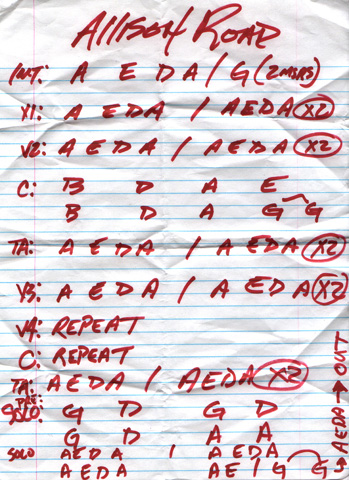 ALLISON ROAD
INT: A E D A / G (2 MSRS)
V1: A E D A / A E D A X2
V2: A E D A / A E D A X2
C: B D A E
B D A G G
TA: A E D A / A E D A X2
V3: A E D A / A E D A X2
V4: REPEAT
C: REPEAT
TA: A E D A / A E D A X2
PRE-
SOLO: G D G D
G D A A
SOLO A E D A / A E D A
A E D A A E / G G
AEDA → OUT